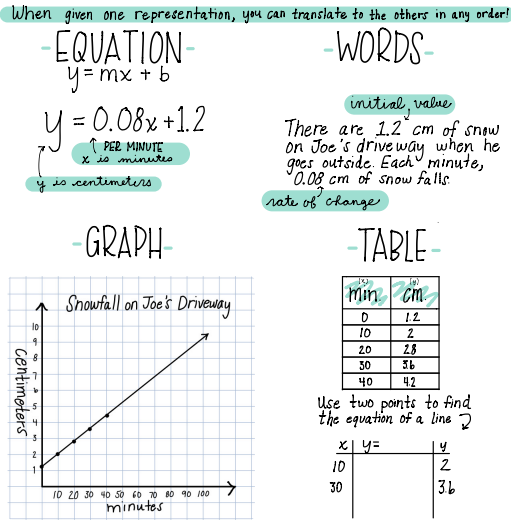 When given one representation, you can translate to the others in any order!
-EQUATION-
y=mx + b
y = 0.08x +1.2
PER MINUTE
x is minutes
y is centimeters
-WORDS-
initial value
There are 1.2 cm of snow
on Joe's driveway when he
goes outside. Each minute,
0.08 cm of snow falls.
rate of change
-GRAPH-
Snowfall on Joe's Driveway
centimeters
10
9
8
7
6
5
4
3
2
1
10 20 30 40 50 60 70 80 90 100
minutes
-TABLE-
(x) (y)
min. cm.
0 1.2
10 2
20 2.8
30 3.6
40 4.2
Use two points to find
the equation of a line
x y= y
10 2
30 3.6